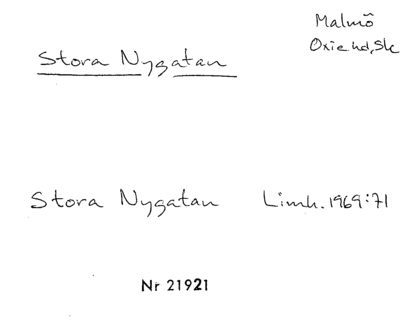 Malmö
Oxie hd, Sk
Stora Nygatan
Stora Nygatan Limh. 1969:71
Nr 21921